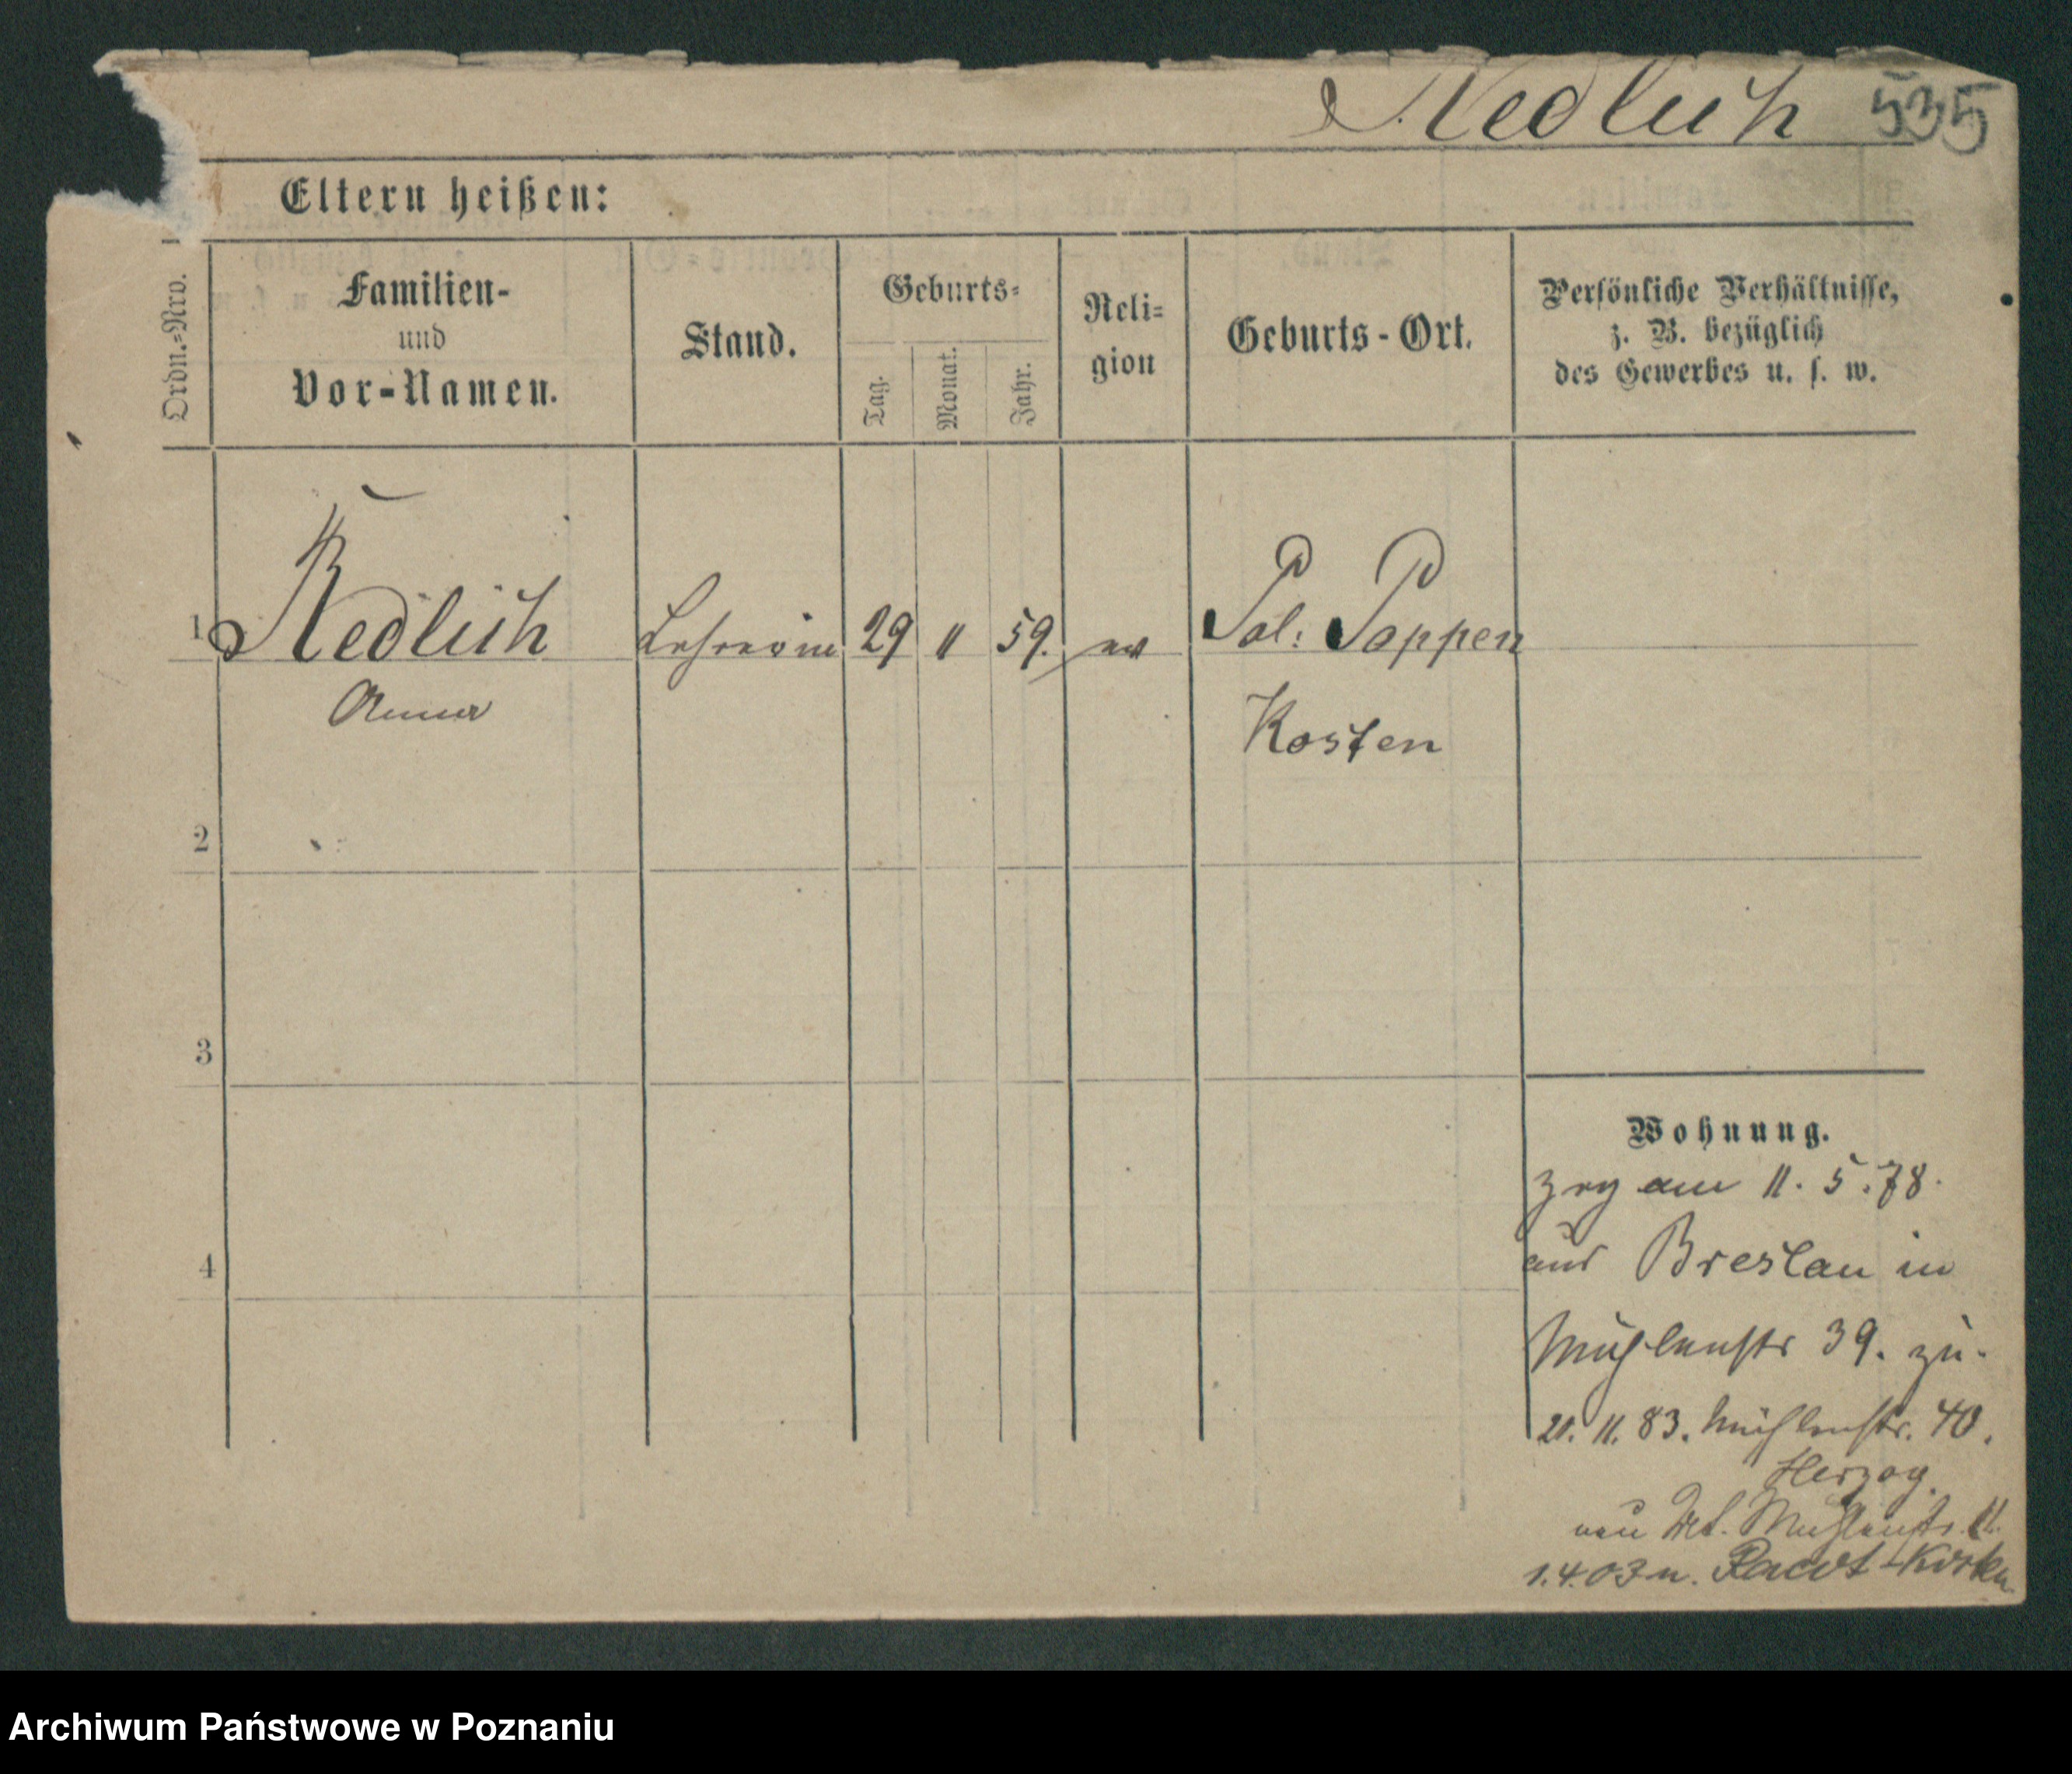 Redlich 535
Eltern heißen:
Ordn.=Nro.
Familien-
und
Vor-Namen.
Stand.
Geburts=
Tag.
Monat.
Jahr.
Reli=
gion
Geburts-Ort.
Persönliche Verhältnisse,
z. B. bezüglich
des Gewerbes u. s. w.
1 Redlich Lehrerin 29 11 59. ev Pol: Poppen
Anna
Kosten
2
3
4
Wohnung.
zog am 11. 5. 78.
aus Breslau in
Mühlenstr 39. zu.
21. 11. 83. Mühlenstr. 40.
Herzog.
Mühlenstr. 11.
1.4.03 n. Racot Kosten
Archiwum Państwowe w Poznaniu